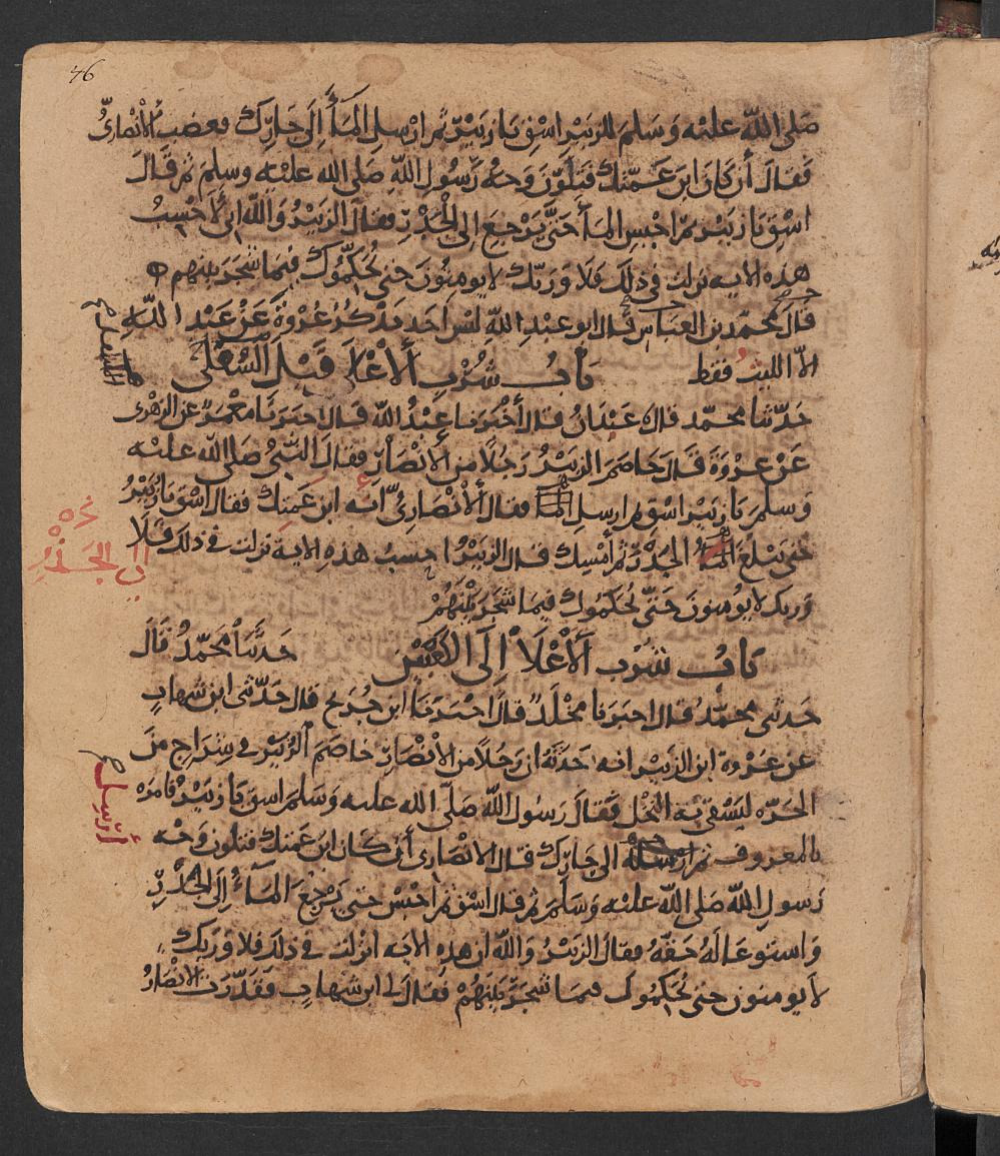 46
صلى الله عليه وسلم للزبير اسق يا زبير ثم ارسل المأ إلى جارك فغضب الأنصاريُّ
فقال أن كان ابن عمتك فتلون وجه رسول الله صلى الله عليه وسلم ثم قال
اسق يا زبير ثم احبس المأ حتى يرجع إلى الجدر فقال الزبير والله إني لأحسب
هذه الايه نزلت في ذلك فلا وربك لا يومنون حتى يحكموك فيما شجر بينهم
قال محمد بن العباس قال ابو عبد الله ليس احد يذكر عروة عن عبد الله
الا الليث فقط باب شرب الأعلا قبل السفلى
حدثنا محمد قال عبدان قال أخبرنا عبد الله قال اخبرنا معمر عن الزهرى
عن عروة قال خاصم الزبير رجلا من الأنصار فقال النبي صلى الله عليه
وسلم يا زبير اسق ثم ارسل فقال الأنصاري انه ابن عمتك فقال اسق يا زبير
حتى يبلغ الما الجدر ثم أمسك قال الزبير احسب هذه الاية نزلت في ذلك فلا
إلى الجدر
وربك لا يومنون حتى يحكموك فيما شجر بينهم
باب شرب الأعلا إلى الكعبين حدثنا محمد قال
حدثني محمد قال اخبرنا مخلد قال اخبرنا ابن جريج قال حدثني ابن شهاب
عن عروة ابن الزبير انه حدثه ان رجلا من الأنصار خاصم الزبير في شراج من
الحره ليسقي به النخل فقال رسول الله صلى الله عليه وسلم اسق يا زبير فامره
بالمعروف ثم ارسله الى جارك قال الانصارى أن كان ابن عمتك فتلون وجه
أرسل
رسول الله صلى الله عليه وسلم ثم قال اسق ثم احبس حتى يرجع الماء إلى الجدر
واستوعا له حقه فقال الزبير والله ان هذه الايه انزلت في ذلك فلا وربك
لا يومنون حتى يحكموك فيما شجر بينهم فقال لى ابن شهاب فقدرت الأنصار